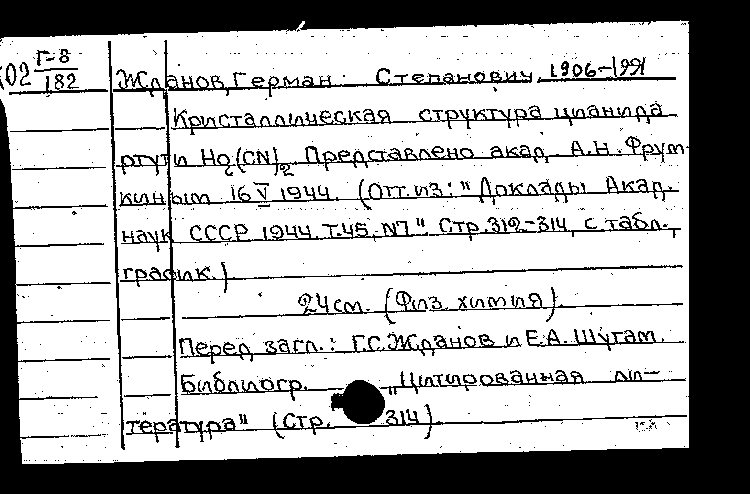 Г-8
102
182
Жданов, Герман Степанович, 1906-1991
Кристаллическая структура цианида
ртути Hg(CN)2. Представлено акад. А.Н. Фрум-
киным 16 V 1944. (Отт. из: "Доклады Акад.
наук СССР 1944. Т.45, N7" Стр. 312-314, с табл.,
график.)
24 см. (Физ. химия).
Перед загл.: Г.С. Жданов и Е.А. Шугам.
Библиогр. „Цитированная ли-
тература" (Стр. 314).